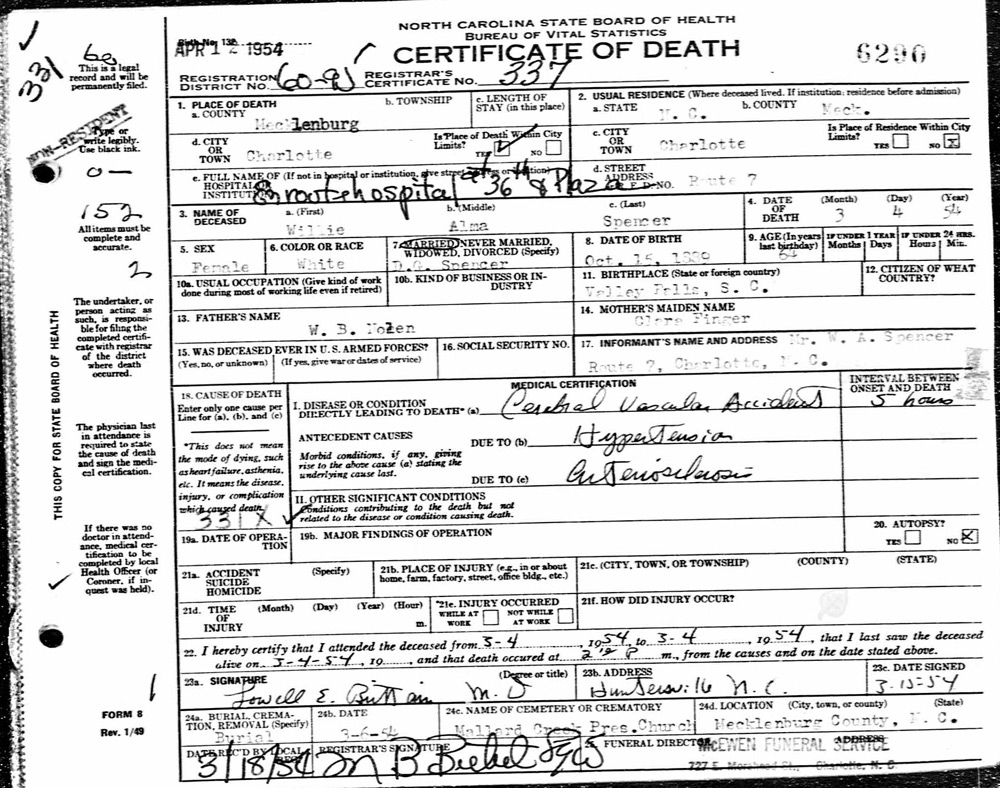 NORTH CAROLINA STATE BOARD OF HEALTH
BUREAU OF VITAL STATISTICS
CERTIFICATE OF DEATH
6290
Birth No. 132
APR 12 1954
REGISTRATION DISTRICT NO. 60-95 REGISTRAR'S CERTIFICATE NO. 337
331
60
This is a legal record and will be permanently filed.
NON-RESIDENT
Type or write legibly. Use black ink.
0 —
152
All items must be complete and accurate.
2
The undertaker, or person acting as such, is responsible for filing the completed certificate with registrar of the district where death occurred.
The physician last in attendance is required to state the cause of death and sign the medical certification.
If there was no doctor in attendance, medical certification to be completed by local Health Officer (or Coroner, if inquest was held).
THIS COPY FOR STATE BOARD OF HEALTH
1
FORM 8
Rev. 1/49
1. PLACE OF DEATH
a. COUNTY
Mecklenburg
b. TOWNSHIP
c. LENGTH OF STAY (in this place)
2. USUAL RESIDENCE (Where deceased lived. If institution: residence before admission)
a. STATE
N. C.
b. COUNTY
Meck.
d. CITY OR TOWN
Charlotte
Is Place of Death Within City Limits?
YES NO
c. CITY OR TOWN
Charlotte
Is Place of Residence Within City Limits?
YES NO X
e. FULL NAME OF (If not in hospital or institution, give street address or location)
HOSPITAL OR INSTITUTION
En route hospital at 36th & Plaza
d. STREET ADDRESS OR R.F.D. NO.
Route 7
3. NAME OF DECEASED
a. (First)
Willie
b. (Middle)
Alma
c. (Last)
Spencer
4. DATE OF DEATH
(Month) (Day) (Year)
3 4 54
5. SEX
Female
6. COLOR OR RACE
White
7. MARRIED, NEVER MARRIED, WIDOWED, DIVORCED (Specify)
D.G. Spencer
8. DATE OF BIRTH
Oct. 15, 1889
9. AGE (In years last birthday)
64
IF UNDER 1 YEAR
Months Days
IF UNDER 24 HRS.
Hours Min.
10a. USUAL OCCUPATION (Give kind of work done during most of working life even if retired)
10b. KIND OF BUSINESS OR INDUSTRY
11. BIRTHPLACE (State or foreign country)
Valley Falls, S. C.
12. CITIZEN OF WHAT COUNTRY?
13. FATHER'S NAME
W. B. Nolen
14. MOTHER'S MAIDEN NAME
Clara Finger
15. WAS DECEASED EVER IN U. S. ARMED FORCES?
(Yes, no, or unknown) (If yes, give war or dates of service)
16. SOCIAL SECURITY NO.
17. INFORMANT'S NAME AND ADDRESS Mr. W. A. Spencer
Route 7, Charlotte, N. C.
18. CAUSE OF DEATH
Enter only one cause per Line for (a), (b), and (c)
*This does not mean the mode of dying, such as heart failure, asthenia, etc. It means the disease, injury, or complication which caused death.
331X
MEDICAL CERTIFICATION
INTERVAL BETWEEN ONSET AND DEATH
I. DISEASE OR CONDITION DIRECTLY LEADING TO DEATH* (a) Cerebral Vascular Accident
5 hours
ANTECEDENT CAUSES
Morbid conditions, if any, giving rise to the above cause (a) stating the underlying cause last.
DUE TO (b) Hypertension
DUE TO (c) Arteriosclerosis
II. OTHER SIGNIFICANT CONDITIONS
Conditions contributing to the death but not related to the disease or condition causing death.
19a. DATE OF OPERATION
19b. MAJOR FINDINGS OF OPERATION
20. AUTOPSY?
YES NO X
21a. ACCIDENT SUICIDE HOMICIDE (Specify)
21b. PLACE OF INJURY (e.g., in or about home, farm, factory, street, office bldg., etc.)
21c. (CITY, TOWN, OR TOWNSHIP) (COUNTY) (STATE)
21d. TIME OF INJURY (Month) (Day) (Year) (Hour) m.
21e. INJURY OCCURRED
WHILE AT WORK NOT WHILE AT WORK
21f. HOW DID INJURY OCCUR?
22. I hereby certify that I attended the deceased from 3-4, 1954, to 3-4, 1954, that I last saw the deceased
alive on 3-4-54, 19, and that death occured at P m., from the causes and on the date stated above.
23a. SIGNATURE (Degree or title)
Lowell E. Brittain M. D
23b. ADDRESS
Huntersville N. C.
23c. DATE SIGNED
3-15-54
24a. BURIAL, CREMATION, REMOVAL (Specify)
Burial
24b. DATE
3-6-54
24c. NAME OF CEMETERY OR CREMATORY
Mallard Creek Pres. Church
24d. LOCATION (City, town, or county) (State)
Mecklenburg County, N. C.
DATE REC'D BY LOCAL REG.
3/18/54
REGISTRAR'S SIGNATURE
M B
25. FUNERAL DIRECTOR ADDRESS
McEWEN FUNERAL SERVICE
727 E. Morehead St., Charlotte, N. C.